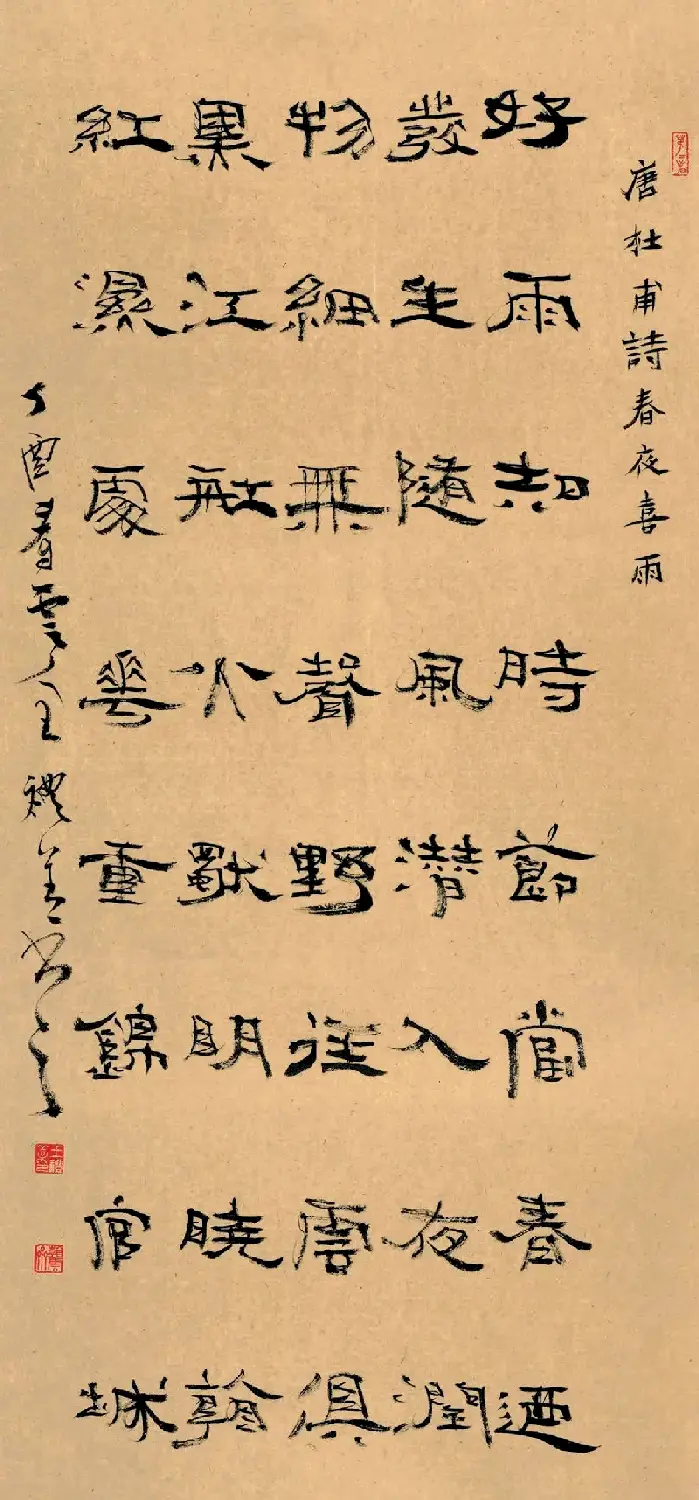 唐杜甫詩春夜喜雨
好雨知時節當春迺
發生隨風潛入夜潤
物細無聲野徑雲俱
黑江船火獨明曉看
紅濕處花重錦官城
丁酉